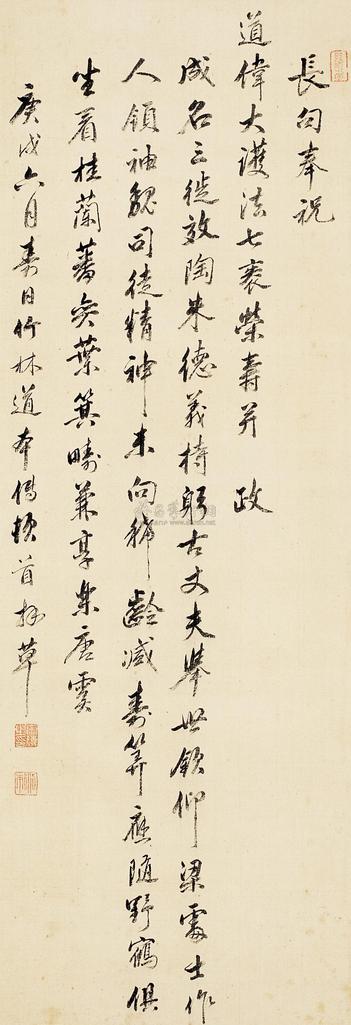 長句奉祝
道偉大護法七袠榮壽并 政
成名三徙效陶朱德義持躬古丈夫舉世欽仰梁處士作
人領袖魏司徒精神未向稀齡減壽算應隨野鶴俱
坐看桂蘭蕃奕葉箕疇兼享樂唐虞
庚戌六月壽日竹林道本傳頓首拜草